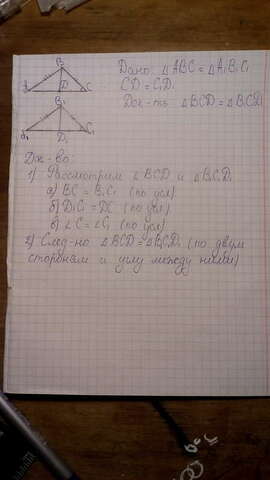 B
A D C
B₁
A₁ D₁ C₁
Дано: △ABC = △A₁B₁C₁
CD = C₁D₁
Док-ть: △BCD = △B₁C₁D₁
Док-во:
1) Рассмотрим △BCD и △B₁C₁D₁
а) BC = B₁C₁ (по усл)
б) D₁C₁ = DC (по усл)
в) ∠C = ∠C₁ (по усл)
2) След-но △BCD = △B₁C₁D₁ (по двум
сторонам и углу между ними)